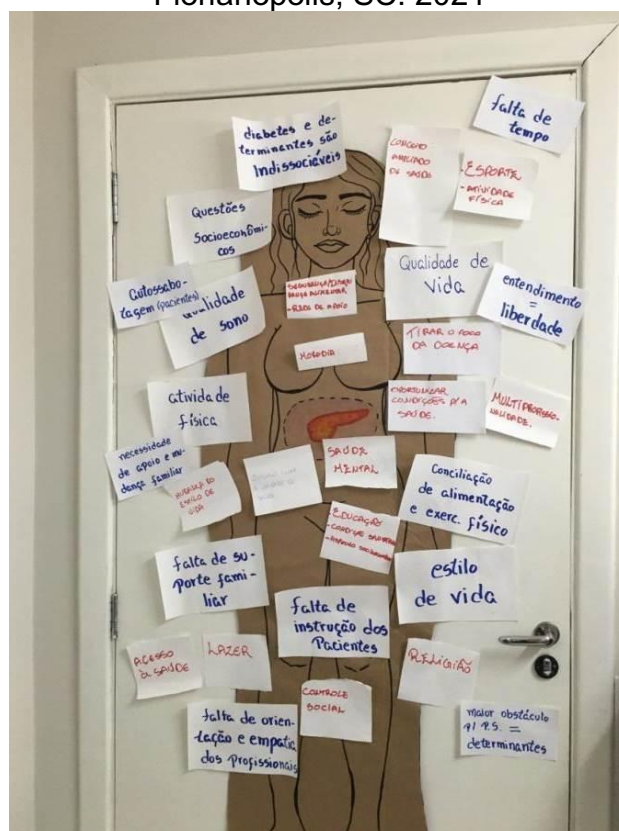 Florianópolis, SC. 2021
falta de
tempo
diabetes e de-
terminantes são
Indissociáveis
CONCEITO
AMPLIADO
DE SAÚDE
- ESPORTE
- ATIVIDADE
FÍSICA
Questões
Socioeconômi-
cos
Qualidade de
vida
entendimento
=
liberdade
Autossabo-
tagem (pacientes)
Qualidade
de sono
ALIMENTAR
- REDE DE APOIO
TIRAR O FOCO
DA DOENÇA
MORADIA
OPORTUNIZAR
CONDIÇÕES P/A
SAÚDE.
MULTIPROFISSIO-
NALIDADE.
atividade
física
necessidade
de apoio e mu-
dança familiar
MUDANÇA DO
ESTILO DE
VIDA
SAÚDE
MENTAL
Conciliação
de alimentação
e exerc. físico
- EDUCAÇÃO
falta de su-
porte fami-
liar
estilo
de vida
falta de
instrução dos
Pacientes
ACESSO
À SAÚDE
LAZER
RELIGIÃO
CONTROLE
SOCIAL
falta de orien-
tação e empatia
dos profissionais
maior obstáculo
p/ P.S. =
determinantes